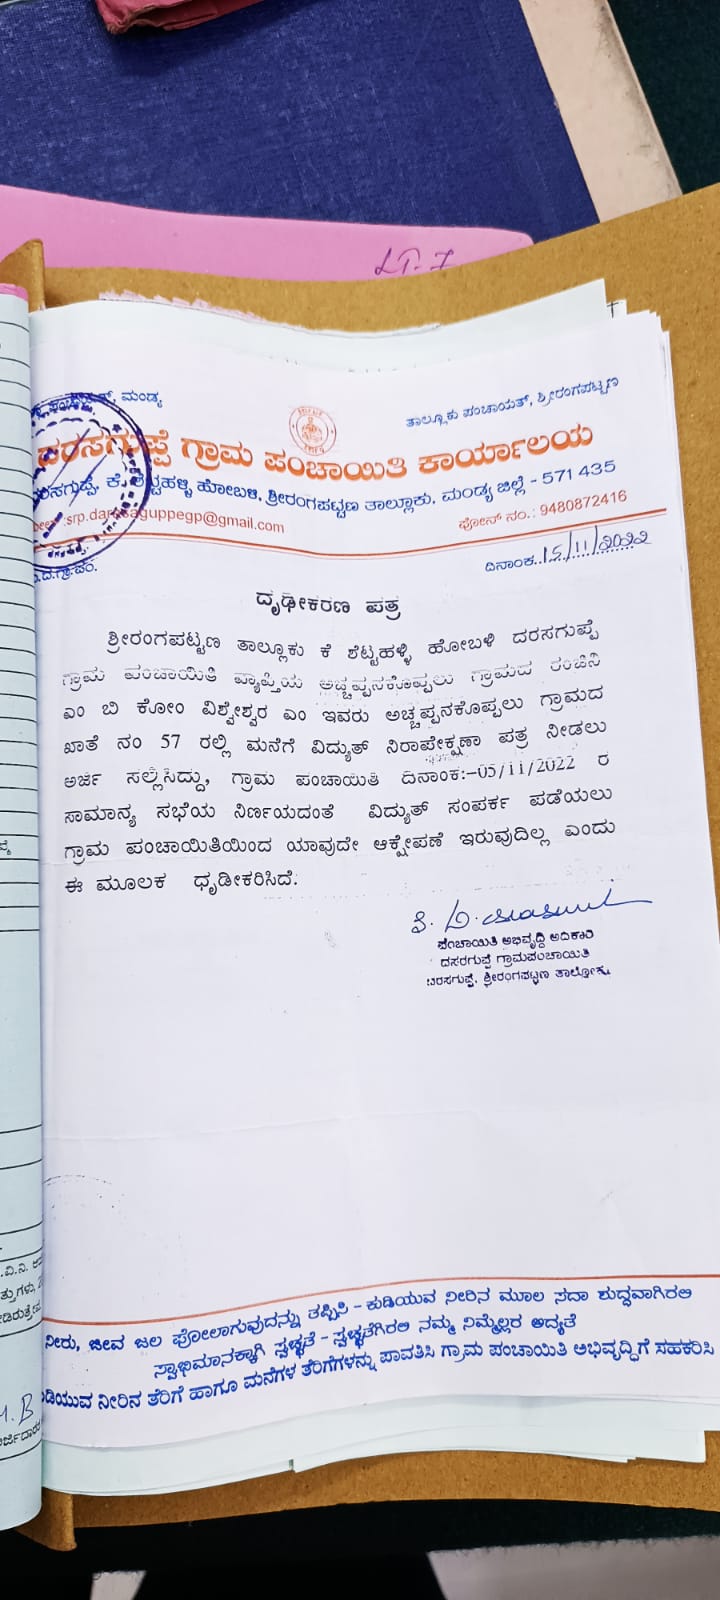 LT-7
ಮಂಡ್ಯ
ತಾಲ್ಲೂಕು ಪಂಚಾಯತ್, ಶ್ರೀರಂಗಪಟ್ಟಣ
ದರಸಗುಪ್ಪೆ ಗ್ರಾಮ ಪಂಚಾಯಿತಿ ಕಾರ್ಯಾಲಯ
ದರಸಗುಪ್ಪೆ, ಕೆ. ಶೆಟ್ಟಹಳ್ಳಿ ಹೋಬಳಿ, ಶ್ರೀರಂಗಪಟ್ಟಣ ತಾಲ್ಲೂಕು, ಮಂಡ್ಯ ಜಿಲ್ಲೆ - 571 435
:srp.darasaguppegp@gmail.com
ಫೋನ್ ನಂ.: 9480872416
ದಿನಾಂಕ..15/11/2022
ದೃಢೀಕರಣ ಪತ್ರ
ಶ್ರೀರಂಗಪಟ್ಟಣ ತಾಲ್ಲೂಕು ಕೆ ಶೆಟ್ಟಹಳ್ಳಿ ಹೋಬಳಿ ದರಸಗುಪ್ಪೆ
ಗ್ರಾಮ ಪಂಚಾಯಿತಿ ವ್ಯಾಪ್ತಿಯ ಅಚ್ಚಪ್ಪನಕೊಪ್ಪಲು ಗ್ರಾಮದ ರಂಜಿನಿ
ಎಂ ಬಿ ಕೋಂ ವಿಶ್ವೇಶ್ವರ ಎಂ ಇವರು ಅಚ್ಚಪ್ಪನಕೊಪ್ಪಲು ಗ್ರಾಮದ
ಖಾತೆ ನಂ 57 ರಲ್ಲಿ ಮನೆಗೆ ವಿದ್ಯುತ್ ನಿರಾಪೇಕ್ಷಣಾ ಪತ್ರ ನೀಡಲು
ಅರ್ಜಿ ಸಲ್ಲಿಸಿದ್ದು, ಗ್ರಾಮ ಪಂಚಾಯಿತಿ ದಿನಾಂಕ:-05/11/2022 ರ
ಸಾಮಾನ್ಯ ಸಭೆಯ ನಿರ್ಣಯದಂತೆ ವಿದ್ಯುತ್ ಸಂಪರ್ಕ ಪಡೆಯಲು
ಗ್ರಾಮ ಪಂಚಾಯಿತಿಯಿಂದ ಯಾವುದೇ ಆಕ್ಷೇಪಣೆ ಇರುವುದಿಲ್ಲ ಎಂದು
ಈ ಮೂಲಕ ಧೃಡೀಕರಿಸಿದೆ.
ಪಂಚಾಯಿತಿ ಅಭಿವೃದ್ಧಿ ಅಧಿಕಾರಿ
ದಸರಗುಪ್ಪೆ ಗ್ರಾಮಪಂಚಾಯಿತಿ
ದರಸಗುಪ್ಪೆ, ಶ್ರೀರಂಗಪಟ್ಟಣ ತಾಲ್ಲೋಕು
ನೀರು, ಜೀವ ಜಲ ಪೋಲಾಗುವುದನ್ನು ತಪ್ಪಿಸಿ - ಕುಡಿಯುವ ನೀರಿನ ಮೂಲ ಸದಾ ಶುದ್ಧವಾಗಿರಲಿ
ಸ್ವಾಭಿಮಾನಕ್ಕಾಗಿ ಸ್ವಚ್ಛತೆ - ಸ್ವಚ್ಛತೆಗಿರಲಿ ನಮ್ಮ ನಿಮ್ಮೆಲ್ಲರ ಆದ್ಯತೆ
ಕುಡಿಯುವ ನೀರಿನ ತೆರಿಗೆ ಹಾಗೂ ಮನೆಗಳ ತೆರಿಗೆಗಳನ್ನು ಪಾವತಿಸಿ ಗ್ರಾಮ ಪಂಚಾಯಿತಿ ಅಭಿವೃದ್ಧಿಗೆ ಸಹಕರಿಸಿ